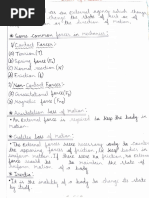 are an external agency which change
change the state of rest or of
or the direction of motion.
* Some common forces in mechanics:
1) Contact Forces:
(a) Tension (T)
(b) Spring force (Fs)
(c) Normal reaction (N)
(d) Friction (f)
2) Non-Contact Forces:
(a) Gravitational force (Fg)
(b) Magnetic force (Fm)
* Aristotelian law of motion:
• An External force is required to keep the body in
motion.
* Galileo law of motion:
• An External force were necessary only to counter
the opposing forces of friction, to keep bodies in
uniform motion. If there were no friction, no
External force would be needed to maintain the
uniform motion of body.
* Inertia:
• It is the inability of a body to change its state
by itself